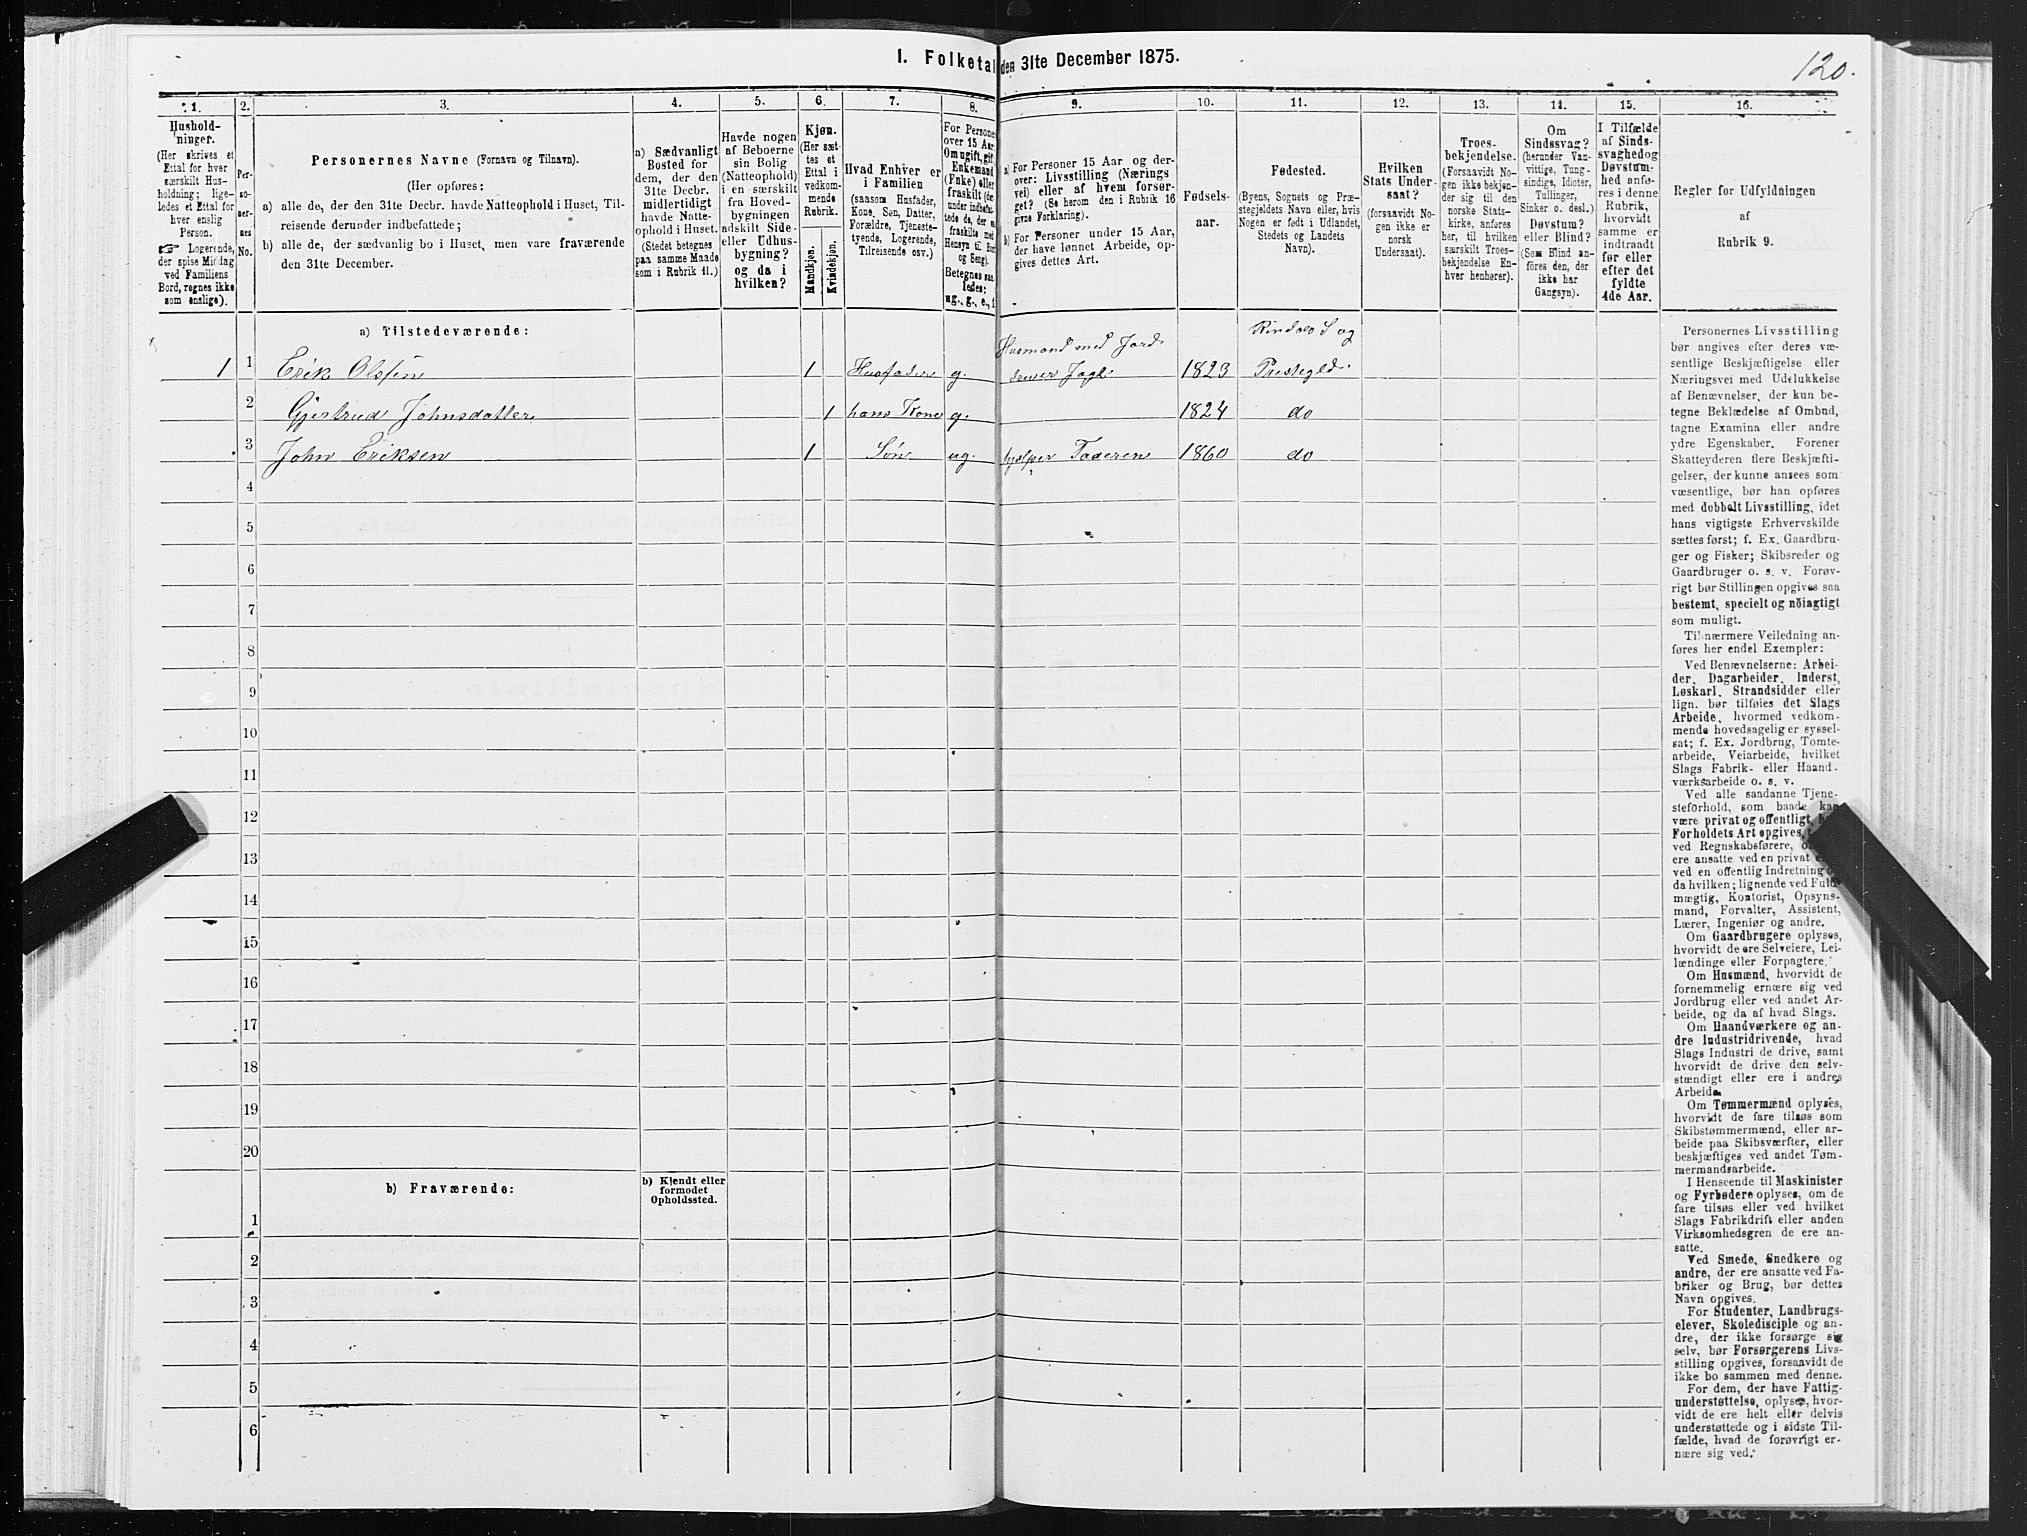 I. Folketal den 31te December 1875.
120.
1.
2.
3.
4.
5.
6.
7.
8.
9.
10.
11.
12.
13.
14.
15.
16.
Hushold-
ninger.
(Her skrives et
Ettal for hver
særskilt Hus-
holdning; lige-
ledes et Ettal for
hver enslig
Person.
☞ Logerende,
der spise Middag
ved Familiens
Bord, regnes ikke
som enslige).
Per-
so-
ner-
nes
No.
Personernes Navne (Fornavn og Tilnavn).
(Her opføres:
a) alle de, der den 31te Decbr. havde Natteophold i Huset, Til-
reisende derunder indbefattede;
b) alle de, der sædvanlig bo i Huset, men vare fraværende
den 31te December.
a) Sædvanligt
Bosted for
dem, der den
31te Decbr.
midlertidigt
havde Natte-
ophold i Huset.
(Stedet betegnes
paa samme Maade
som i Rubrik 11.)
Havde nogen
af Beboerne
sin Bolig
(Natteophold)
i en særskilt
fra Hoved-
bygningen
adskilt Side-
eller Udhus-
bygning?
og da i
hvilken?
Kjøn.
(Her sæt-
tes et
Ettal i
vedkom-
mende
Rubrik.
Mandkjøn.
Kvindekjøn.
Hvad Enhver er
i Familien
(saasom Husfader,
Kone, Søn, Datter,
Forældre, Tjeneste-
tyende, Logerende,
Tilreisende osv.)
For Personer
over 15 Aar:
Om ugift, gift,
Enkemand
(Enke) eller
fraskilt
Betegnes saa-
ledes:
ug., g., e., f.
a) For Personer 15 Aar og der-
over: Livsstilling (Nærings
vei) eller af hvem forsør-
get? (Se herom den i Rubrik 16
givne Forklaring).
b) For Personer under 15 Aar,
der have lønnet Arbeide, op-
gives dettes Art.
Fødsels-
aar.
Fødested.
(Byens, Sognets og Præ-
stegjeldets Navn eller, hvis
Nogen er født i Udlandet,
Stedets og Landets
Navn).
Hvilken
Stats Under-
saat?
(forsaavidt No-
gen ikke er
norsk
Undersaat).
Troes-
bekjendelse.
(Forsaavidt No-
gen ikke bekjen-
der sig til den
norske Stats-
kirke, anføres
her, til hvilken
særskilt Troes-
bekjendelse En-
hver henhører).
Om
Sindssvag?
(herunder Van-
vittige, Tung-
sindige, Idioter,
Tullinger,
Sinker o. desl.)
Døvstum?
eller Blind?
(Som Blind an-
føres den, der
ikke har
Gangsyn).
I Tilfælde
af Sinds-
svaghed og
Døvstum-
hed anfø-
res i denne
Rubrik,
hvorvidt
samme er
indtraadt
før eller
efter det
fyldte
4de Aar.
Regler for Udfyldningen
af
Rubrik 9.
a) Tilstedeværende:
1 1 Erik Olsen 1 Husfader g. Husmand med Jord 1823 Rindals S og Prestegld.
2 Gjertrud Johnsdatter 1 hans Kone g. 1824 do
3 John Eriksen 1 Søn ug. hjelper Faderen 1860 do
4
5
6
7
8
9
10
11
12
13
14
15
16
17
18
19
20
b) Fraværende:
b) Kjendt eller
formodet
Opholdssted.
1
2
3
4
5
6
Personernes Livsstilling
bør angives efter deres væ-
sentlige Beskjæftigelse eller
Næringsvei med Udelukkelse
af Benævnelser, der kun be-
tegne Beklædelse af Ombud,
tagne Examina eller andre
ydre Egenskaber. Forener
Skatteyderen flere Beskjæfti-
gelser, der kunne ansees som
væsentlige, bør han opføres
med dobbelt Livsstilling, idet
hans vigtigste Erhvervskilde
sættes først; f. Ex. Gaardbru-
ger og Fisker; Skibsreder og
Gaardbruger o. s. v. Forøv-
rigt bør Stillingen opgives saa
bestemt, specielt og nøiagtigt
som muligt.
Til nærmere Veiledning an-
føres her endel Exempler:
Ved Benævnelserne: Arbei-
der, Dagarbeider, Inderst,
Løskarl, Strandsidder eller
lign. bør tilføies det Slags
Arbeide, hvormed vedkom-
mende hovedsagelig er syssel-
sat; f. Ex. Jordbrug, Tomte-
arbeide, Veiarbeide, hvilket
Slags Fabrik- eller Haand-
værksarbeide o. s. v.
Ved alle saadanne Tjene-
steforhold, som baade kan
være privat og offentligt,
Forholdets Art opgives,
ved Regnskabsførere,
ere ansatte ved en privat
ved en offentlig Indretning
da hvilken; lignende ved Fuld-
mægtig, Kontorist, Opsyns-
mand, Forvalter, Assistent,
Lærer, Ingeniør og andre.
Om Gaardbrugere oplyses,
hvorvidt de ere Selveiere, Lei-
lændinge eller Forpagtere.
Om Husmænd, hvorvidt de
fornemmelig ernære sig ved
Jordbrug eller ved andet Ar-
beide, og da af hvad Slags.
Om Haandværkere og an-
dre Industridrivende, hvad
Slags Industri de drive, samt
hvorvidt de drive den selv-
stændigt eller ere i andres
Arbeide.
Om Tømmermænd oplyses,
hvorvidt de fare tilsøs som
Skibstømmermænd, eller ar-
beide paa Skibsværfter, eller
beskjæftiges ved andet Tøm-
mermandsarbeide.
I Henseende til Maskinister
og Fyrbødere oplyses, om de
fare tilsøs eller ved hvilket
Slags Fabrikdrift eller anden
Virksomhedsgren de ere an-
satte.
Ved Smede, Snedkere og
andre, der ere ansatte ved Fa-
briker og Brug, bør dettes
Navn opgives.
For Studenter, Landbrugs-
elever, Skoledisciple og an-
dre, der ikke forsørge sig
selv, bør Forsørgerens Livs-
stilling opgives, forsaavidt de
ikke bo sammen med denne.
For dem, der have Fattig-
understøttelse, oplyses, hvor-
vidt de ere helt eller delvis
understøttede og i sidste Til-
fælde, hvad de forøvrigt er-
nære sig ved.